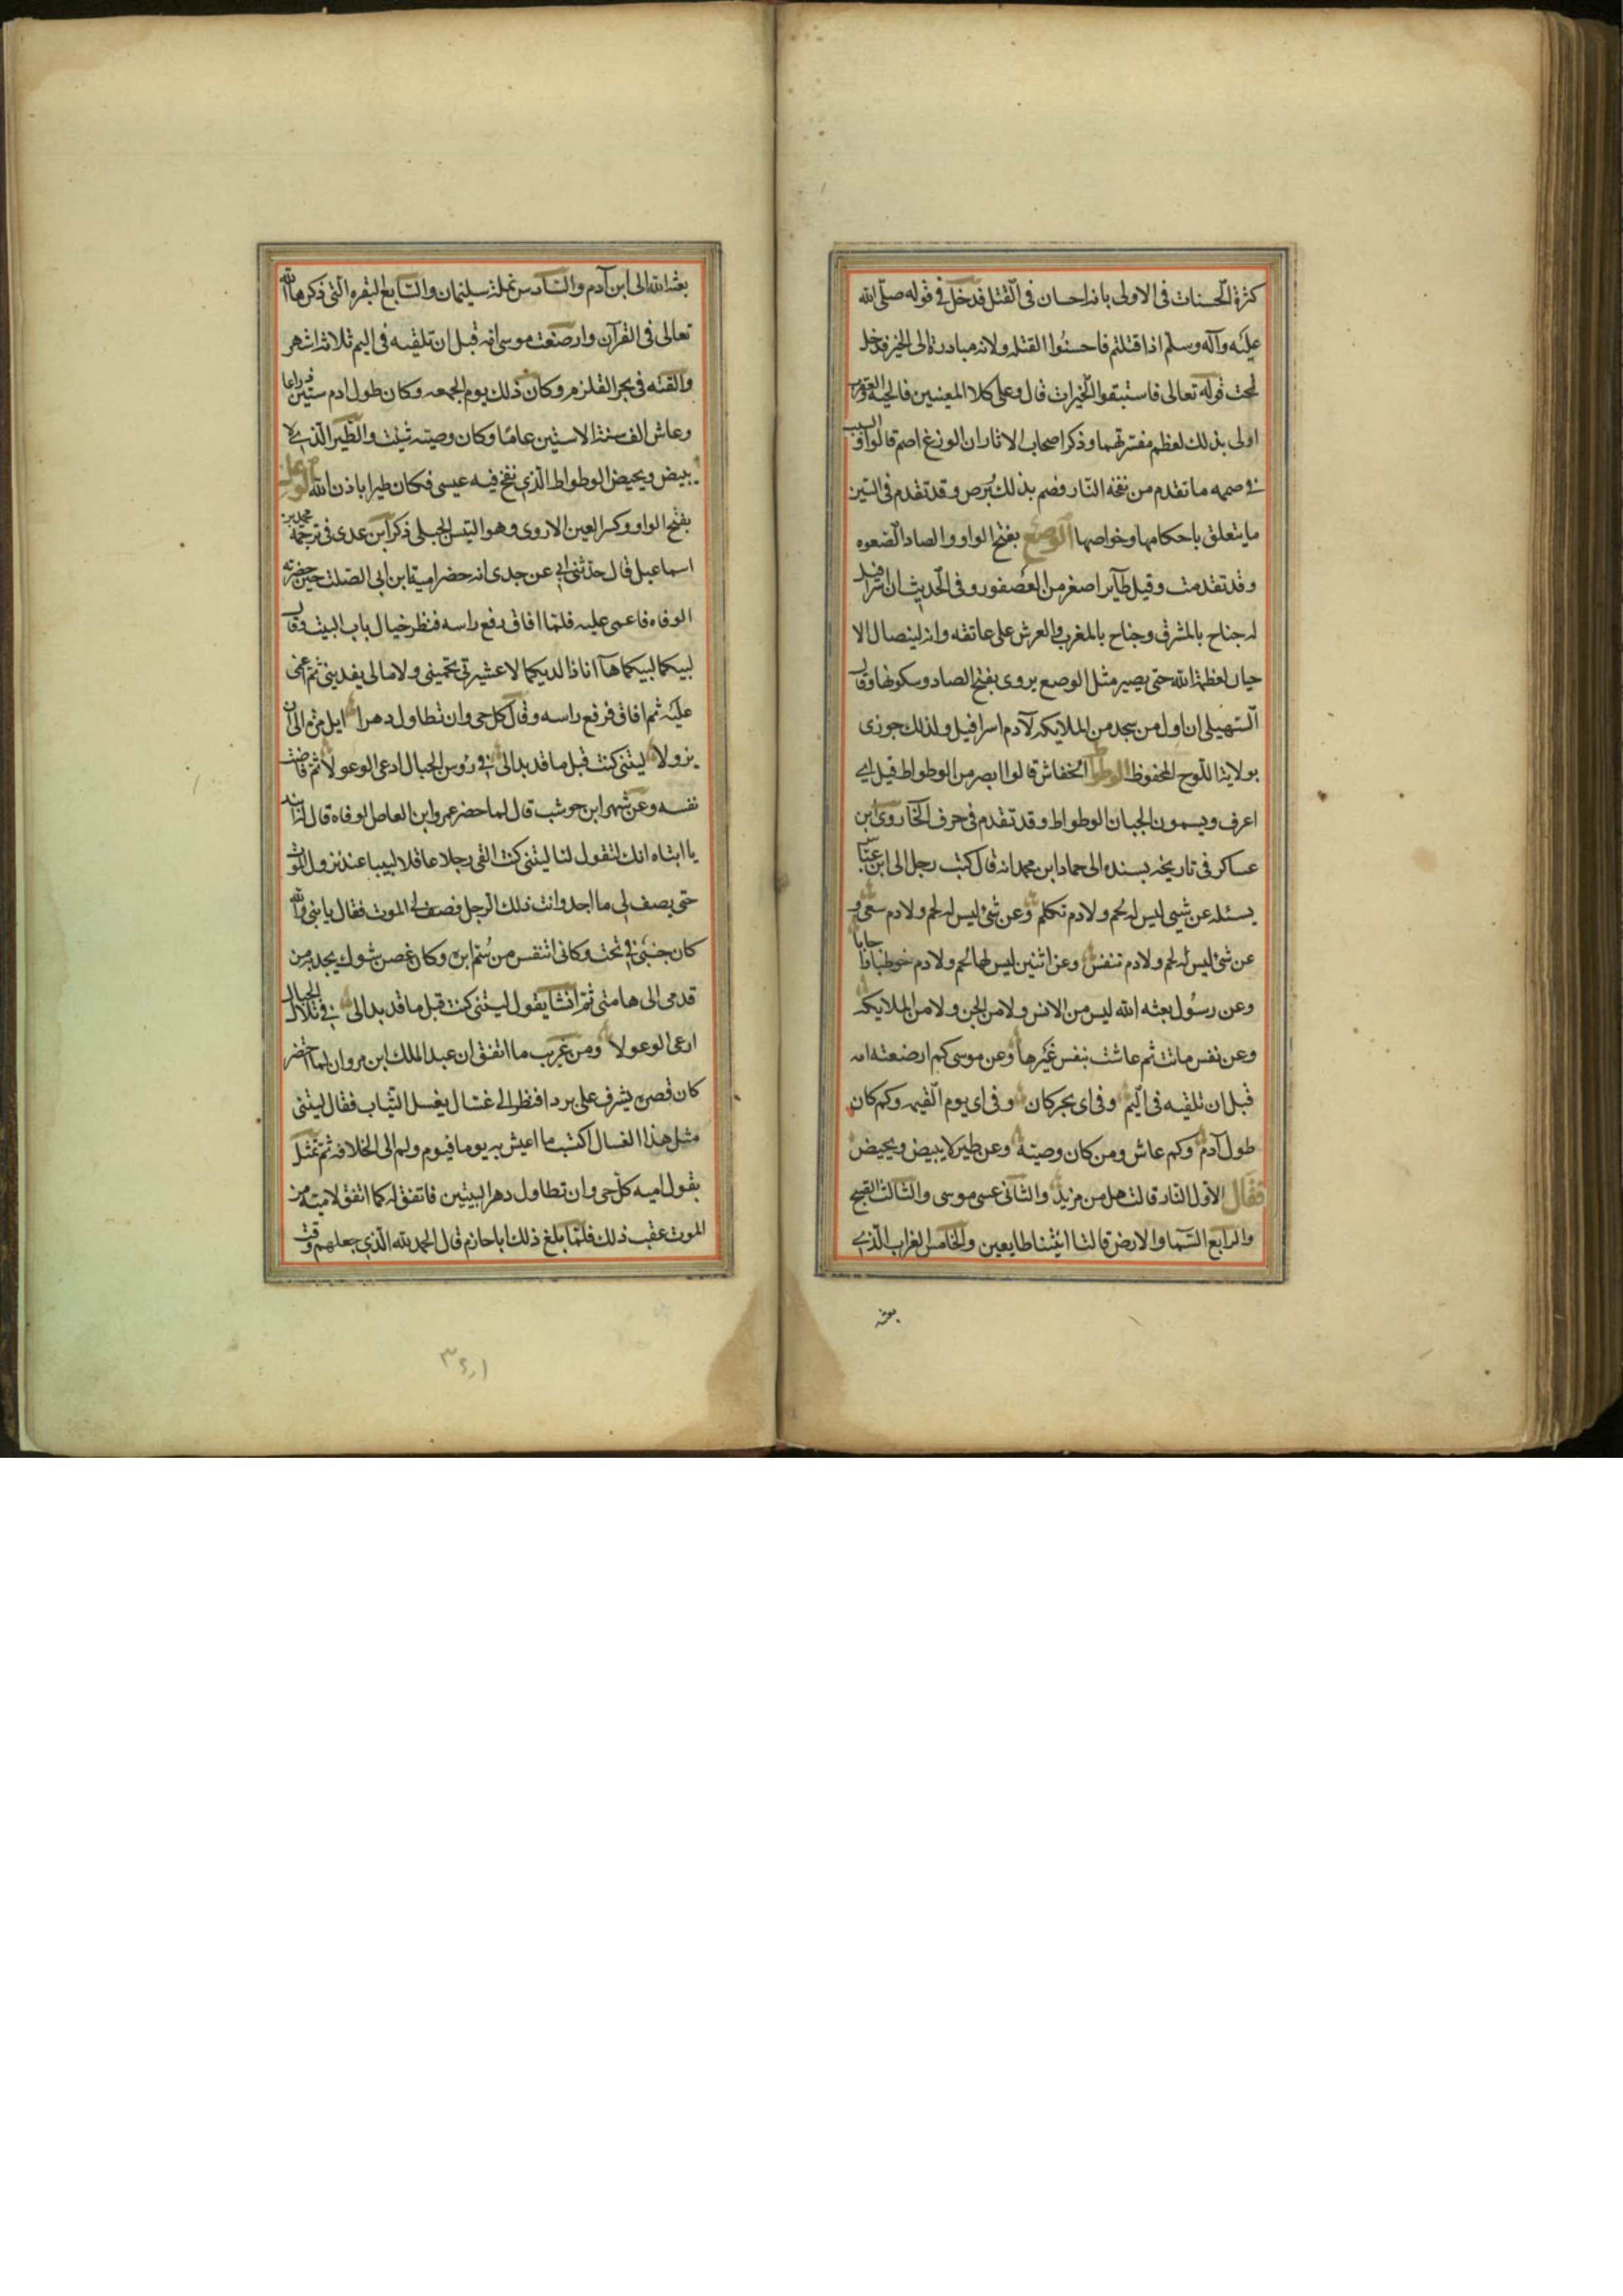 كثرة الحسنات فى الاولى بانه احسان فى القتل فدخل فى قوله صلى الله
عليه وآله وسلم اذا قتلتم فاحسنوا القتله ولانه مبادرة الى الخير فدخل
تحت قوله تعالى فاستبقوا الخيرات قال وعلى كلا المعنيين فالحية والعقرب
اولى بذلك لعظم مفسدتهما وذكر اصحاب الاثار ان الوزغ اصم قالوا والسبب
فى صممه ما تقدم من نفخه النار فصم بذلك وبرص وقد تقدم فى السين
ما يتعلق باحكامها وخواصها الوصع بفتح الواو والصاد الصعوه
وقد تقدمت وقيل طاير اصغر من العصفور وفى الحديث ان اسرافيل
له جناح بالمشرق وجناح بالمغرب والعرش على عاتقه وانه ليتضال الا
حيان لعظمة الله حتى يصير مثل الوصع يروى بفتح الصاد وسكونها وقال
السهيلى ان اول من سجد من الملايكه لآدم اسرافيل ولذلك جوزى
بولاية اللوح المحفوظ الوطواط الخفاش قالوا ابصر من الوطواط قيل اى
اعرف ويسمون الجبان الوطواط وقد تقدم فى حرف الخا روى ابن
عساكر فى تاريخه بسنده الى حماد ابن محمد انه قال كتب رجل الى ابن عباس
يسئله عن شيى ليس له لحم ولا دم تكلم وعن شئ ليس له لحم ولا دم سعى و
عن شئ ليس له لحم ولا دم تنفس وعن اثنين ليس لهما لحم ولا دم خوطبا فاجابا
وعن رسول بعثه الله ليس من الانس ولا من الجن ولا من الملايكه
وعن نفس ماتت ثم عاشت بنفس غيرها وعن موسى كم ارضعته امه
قبل ان تلقيه فى اليم وفى اى بحر كان وفى اى يوم القيه وكم كان
طول آدم وكم عاش ومن كان وصيته وعن طير لا يبيض ويحيض
فقال الاول النار قالت هل من مزيد والثانى عسى موسى والثالث الصبح
والرابع السما والارض قالتا اتينا طايعين والخامس الغراب الذى
بعثه
بعثه الله الى ابن آدم والسادس نملة سليمان والسابع البقره التى ذكرها الله
تعالى فى القرآن وارضعت موسى امه قبل ان تلقيه فى اليم ثلاثة اشهر
والقته فى بحر القلزم وكان ذلك يوم الجمعه وكان طول ادم ستين ذراعا
وعاش الف سنة الا ستين عاما وكان وصيته شيث والطير الذى لا
يبيض ويحيض الوطواط الذى نفخ فيه عيسى فكان طيرا باذن الله الوعل
بفتح الواو وكسر العين الاروى وهو التيس الجبلى ذكر ابن عدى فى ترجمة محمد بن
اسماعيل قال حدثنى ابى عن جدى انه حضر امية ابن ابى الصلت حين حضرته
الوفاه فاغمى عليه فلما افاق رفع راسه فنظر خيال باب البيت وقال
لبيكما لبيكما ها انا ذا لديكما لا عشيرتى تحمينى ولا مالى يفدينى ثم اغمى
عليه ثم افاق فرفع راسه وقال كل حى وان تطاول دهرا ايل مره الى ان
يزولا ليتنى كنت قبل ما قد بدالى فى رؤس الجبال ادعى الوعولا ثم فاضت
نفسه وعن شهر ابن حوشب قال لما حضر عمرو ابن العاص الوفاه قال له ابنه
يا ابتاه انك لتقول لنا ليتنى كنت القى رجلا عاقلا لبيبا عند نزول الموت
حتى يصف لى ما اجد وانت ذلك الرجل فصف لى الموت فقال يا بنى والله
كان جنبى فى تحت وكانى اتنفس من سم ابره وكان غصن شوك يجذب من
قدمى الى هامتى ثم انشا يقول ليتنى كنت قبل ما قد بدالى فى تلال الجبال
ارعى الوعولا ومن غريب ما اتفق ان عبد الملك ابن مروان لما احتضر
كان قصره يشرف على بردا فنظر الى غسال يغسل الثياب فقال ليتنى
مثل هذا الغسال اكتسب ما اعيش به يوما فيوم ولم الى الخلافه ثم تمثل
بقول اميه كل حى وان تطاول دهرا البيتين فاتفق له كما اتفق لاميته من
الموت عقب ذلك فلما بلغ ذلك اباحازم قال الحمد لله الذى جعلهم وقت